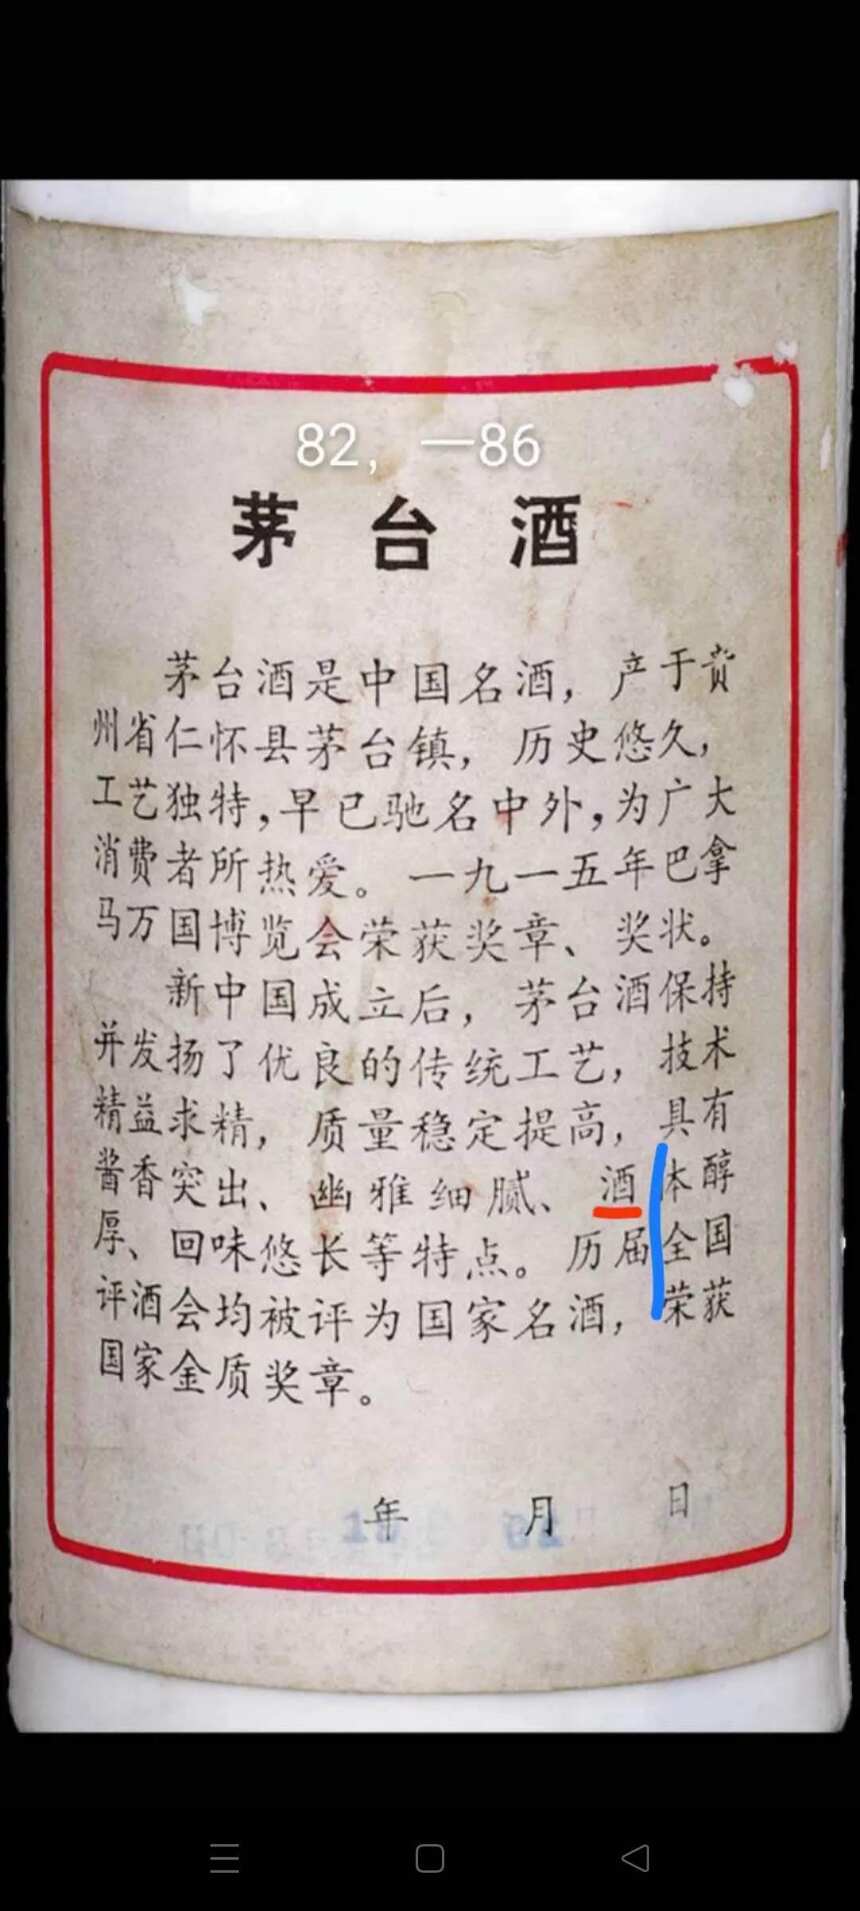 82，一86
茅台酒
茅台酒是中国名酒，产于贵
州省仁怀县茅台镇，历史悠久，
工艺独特，早已驰名中外，为广大
消费者所热爱。一九一五年巴拿
马万国博览会荣获奖章、奖状。
新中国成立后，茅台酒保持
并发扬了优良的传统工艺，技术
精益求精，质量稳定提高，具有
酱香突出、幽雅细腻、酒体醇
厚、回味悠长等特点。历届全国
评酒会均被评为国家名酒，荣获
国家金质奖章。
年 月 日